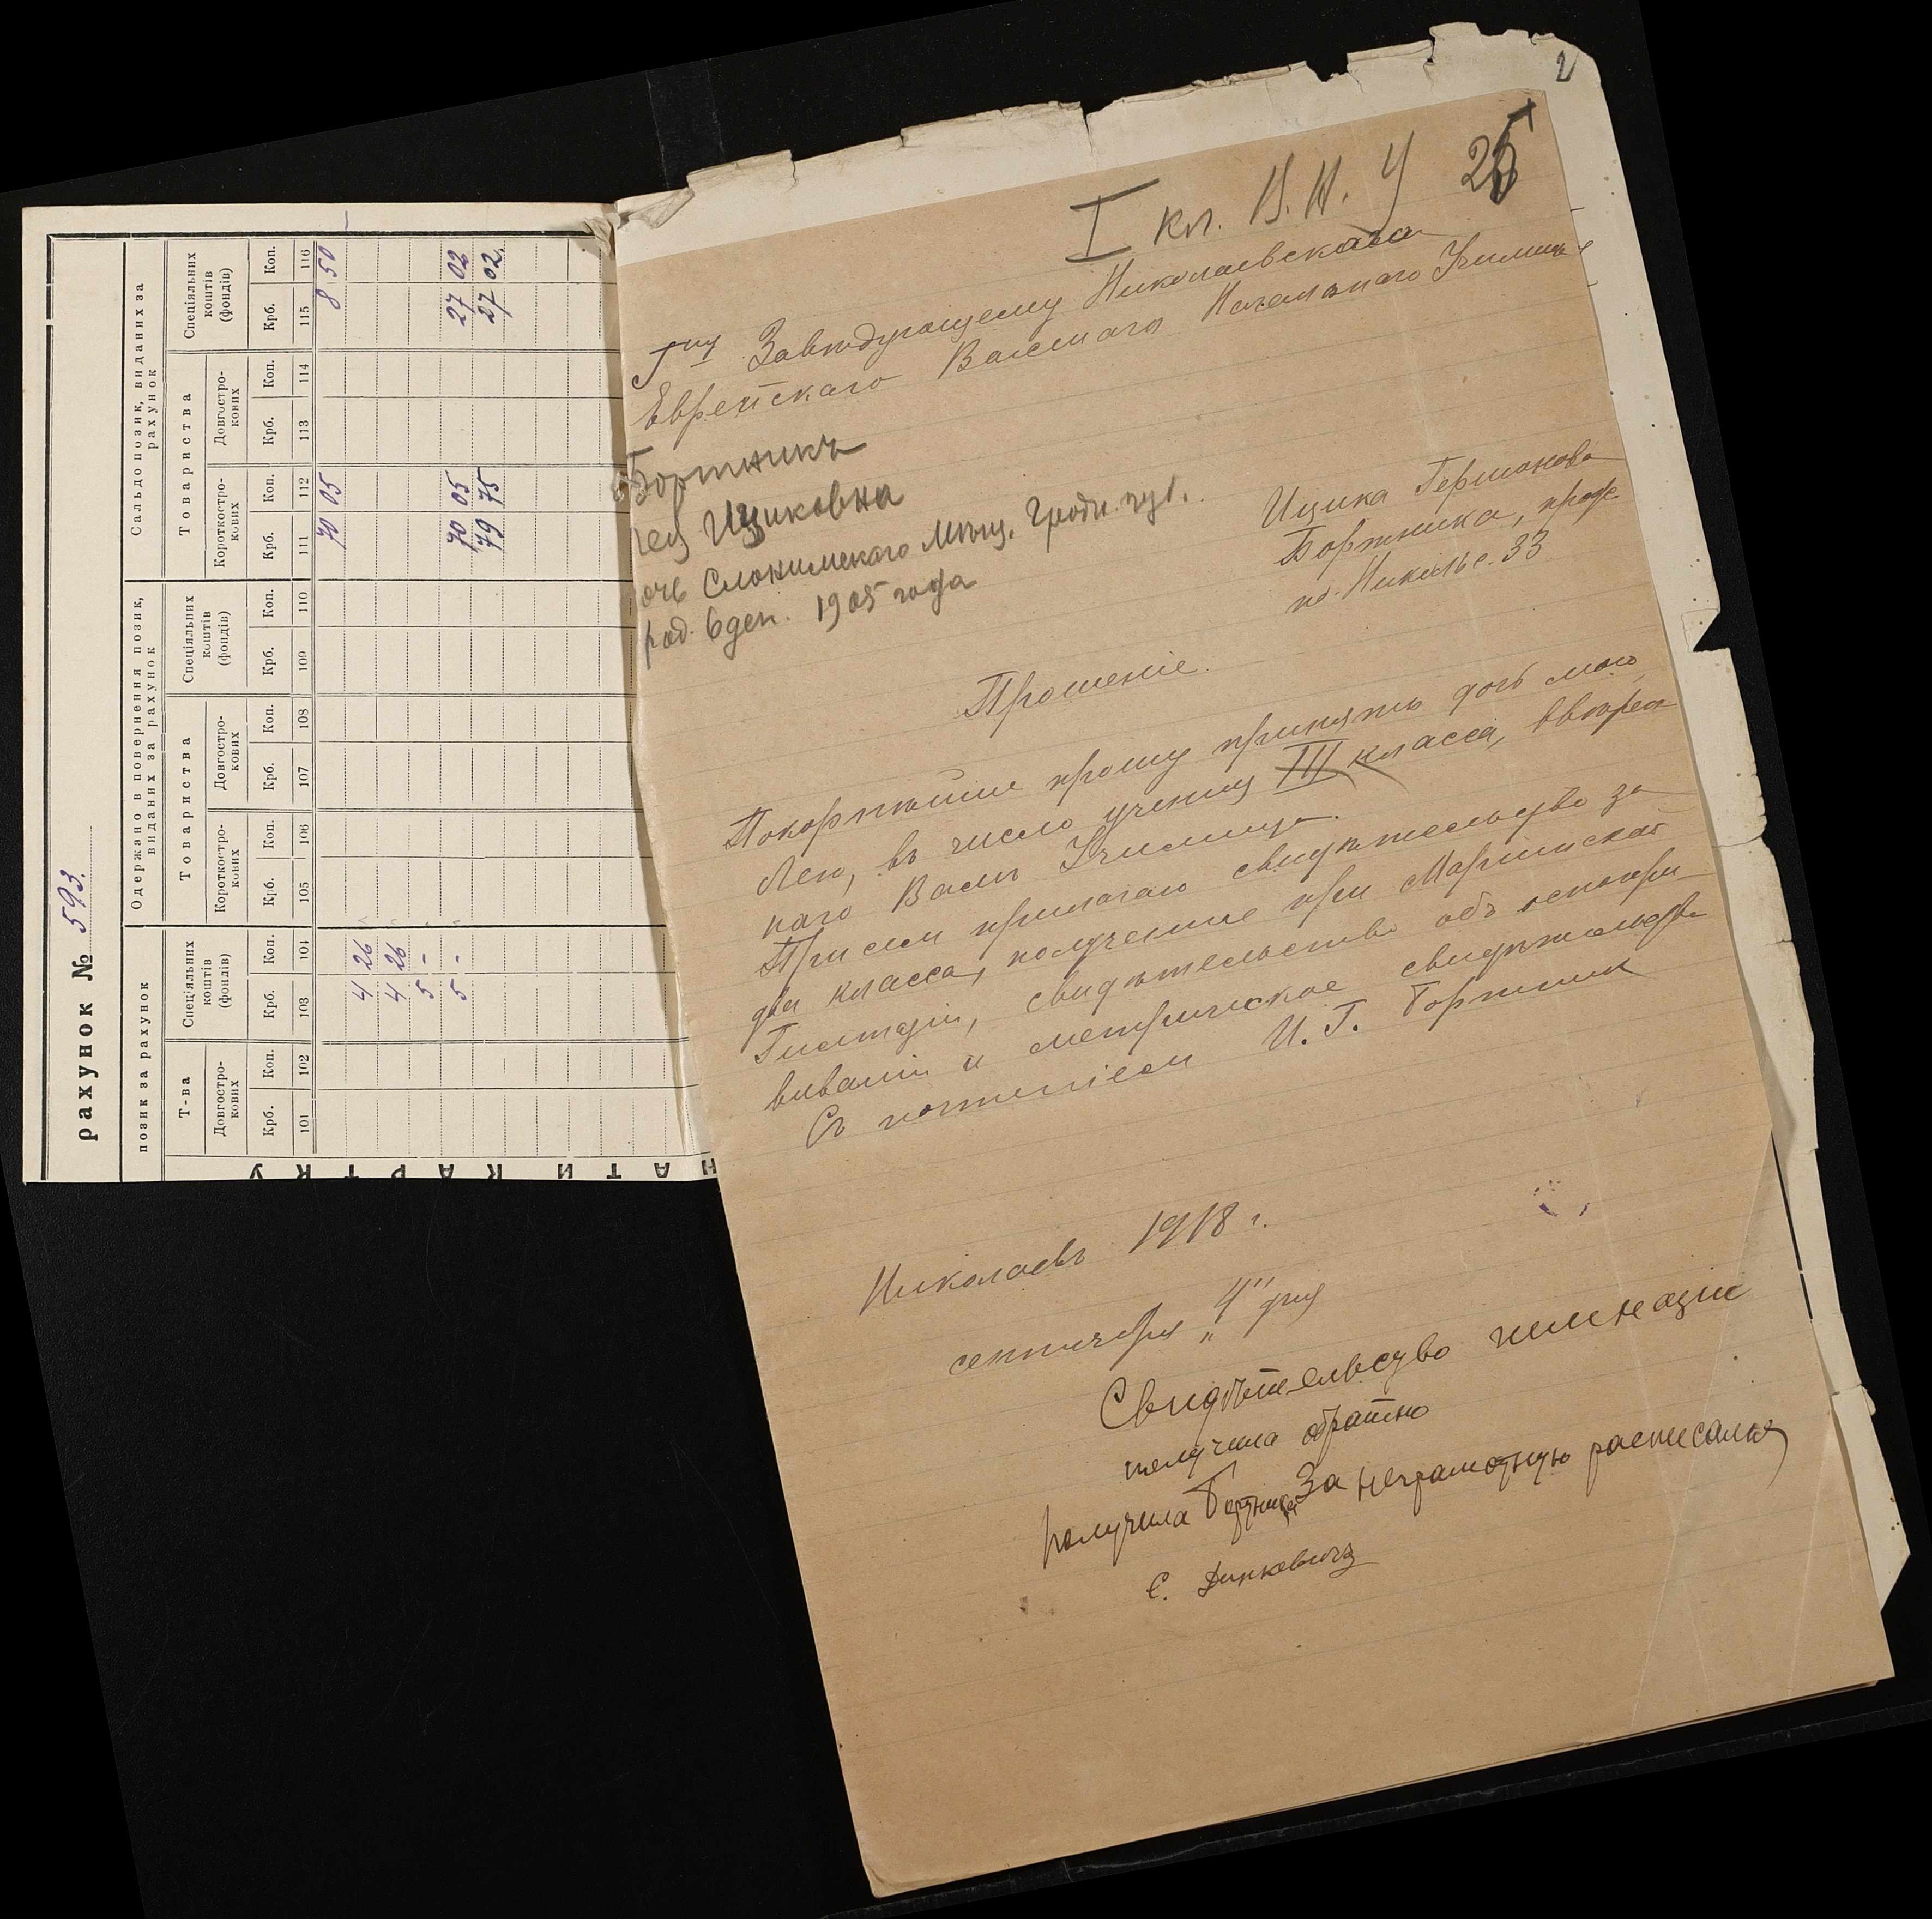 рахунок № 593.
позик за рахунок
Одержано в повернення позик, виданих за рахунок
Сальдо позик, виданих за рахунок
Т-ва
Спеціяльних коштів (фондів)
Товариства
Спеціяльних коштів (фондів)
Товариства
Спеціяльних коштів (фондів)
Довгостро-кових
Короткостро-кових
Довгостро-кових
Короткостро-кових
Довгостро-кових
Крб. Коп. Крб. Коп. Крб. Коп. Крб. Коп. Крб. Коп. Крб. Коп. Крб. Коп. Крб. Коп.
101 102 103 104 105 106 107 108 109 110 111 112 113 114 115 116
70 05 8 50
4 26
4 26
5 -
5 - 70 05 27 02
79 75 27 02.
НАТИ КАРТКУ
2
I кл. В.Н.У 25
Гну Заведующему Николаевскаго
Еврейскаго Высшаго Начальнаго Училища
Бортникъ
Ицковна
очь Слонимскаго Мѣщ. Гродн. губ.
род. 6 дек. 1905 года
Ицика Гершонова
Бортника, прож.
по Никольс. 33
Прошеніе.
Покорнѣйше прошу принять дочь мою
Лею, въ число учениц III класса, ввѣрен
наго Вамъ Училища.
При сем прилагаю свидѣтельство за
два класса, полученное при Маріинской
Гимназіи, свидѣтельство объ оспопри-
виваніи и метрическое свидѣтельство
Съ почтеніем И. Г. Бортник
Николаевъ 1918 г.
сентября „4" дня
Свидѣтельство гимназіи
получила обратно
Получила Бортник За неграмотную расписался
С. Динкевичъ